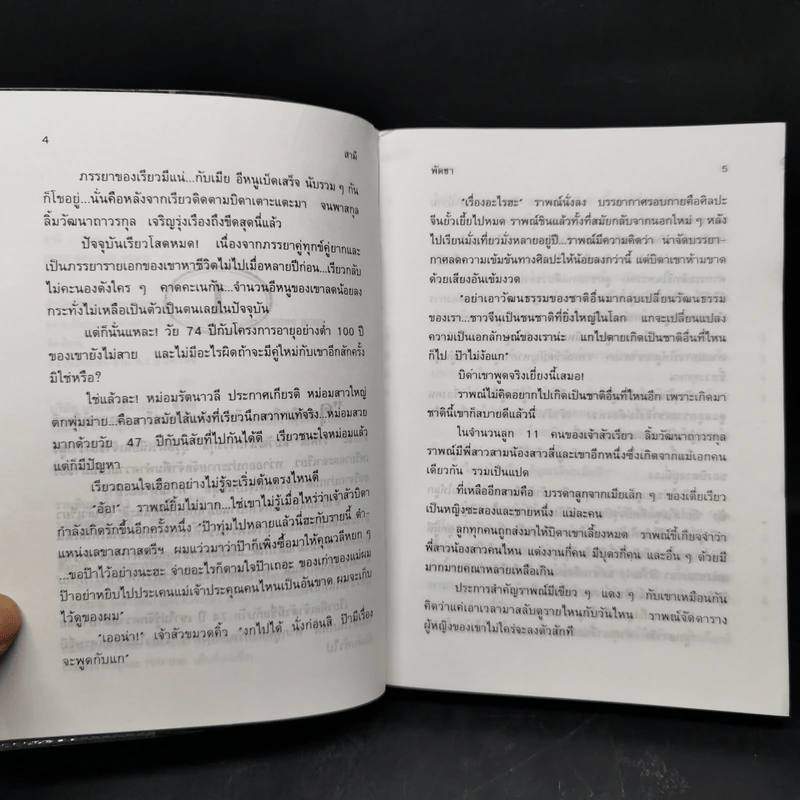 4
สามี
ภรรยาของเรียวมีแน่...กับเมีย อีหนูเบ็ดเสร็จ นับรวม ๆ กัน
ก็โขอยู่...นั่นคือหลังจากเรียวติดตามบิดาเตาะแตะมา จนพาสกุล
ลิ้มวัฒนาถาวรกุล เจริญรุ่งเรืองถึงขีดสุดนี่แล้ว
ปัจจุบันเรียวโสดหมด! เนื่องจากภรรยาคู่ทุกข์คู่ยากและ
เป็นภรรยารายเอกของเขาหาชีวิตไม่ไปเมื่อหลายปีก่อน...เรียวกลับ
ไม่คะนองดังใคร ๆ คาดคะเนกัน...จำนวนอีหนูของเขาลดน้อยลง
กระทั่งไม่เหลือเป็นตัวเป็นตนเลยในปัจจุบัน
แต่ก็นั่นแหละ! วัย 74 ปีกับโครงการอายุอย่างต่ำ 100 ปี
ของเขายังไม่สาย และไม่มีอะไรผิดถ้าจะมีคู่ใหม่กับเขาอีกสักครั้ง
มิใช่หรือ?
ใช่แล้วละ! หม่อมรัตนาวลี ประกาศเกียรติ หม่อมสาวใหญ่
ตกพุ่มม่าย...คือสาวสมัยไส้แห้งที่เรียวนึกสวาทแท้จริง...หม่อมสวย
มากด้วยวัย 47 ปีกับนิสัยที่ไปกันได้ดี เรียวชนะใจหม่อมแล้ว
แต่ก็มีปัญหา
เรียวถอนใจเฮือกอย่างไม่รู้จะเริ่มต้นตรงไหนดี
"อ้อ!" ราพณ์ยิ้มไม่มาก...ใช่เขาไม่รู้เมื่อไหร่ว่าเจ้าสัวบิดา
กำลังเกิดรักขึ้นอีกครั้งหนึ่ง "ป๊าทุ่มไปหลายแล้วนี่ฮะกับรายนี้ ตำ-
แหน่งเลขาสภาสตรีฯ ผมแว่วมาว่าป๊าก็เพิ่งซื้อมาให้คุณวลีหยก ๆ
...ขอป๊าไว้อย่างนะฮะ จ่ายอะไรก็ตามใจป๊าเถอะ ของเก่าของแม่ผม
ป๊าอย่าหยิบไปประเคนแม่เจ้าประคุณคนไหนเป็นอันขาด ผมจะเก็บ
ไว้ดูของผม"
"เออน่า!" เจ้าสัวขมวดคิ้ว "งกไปได้ นั่งก่อนสิ ป๊ามีเรื่อง
จะพูดกับแก"
พัดชา
5
"เรื่องอะไรฮะ" ราพณ์นั่งลง บรรยากาศรอบกายคือศิลปะ
จีนยั้วเยี้ยไปหมด ราพณ์ชินแล้วทั้งที่สมัยกลับจากนอกใหม่ ๆ หลัง
ไปเรียนมั่งเที่ยวมั่งหลายอยู่ปี...ราพณ์มีความคิดว่า น่าจัดบรรยา-
กาศลดความเข้มข้นทางศิลปะให้น้อยลงกว่านี้ แต่บิดาเขาห้ามขาด
ด้วยเสียงอันเข้มงวด
"อย่าเอาวัฒนธรรมของชาติอื่นมากลบเปลี่ยนวัฒนธรรม
ของเรา...ชาวจีนเป็นชนชาติที่ยิ่งใหญ่ในโลก แกจะเปลี่ยนแปลง
ความเป็นเอกลักษณ์ของเราน่ะ แกไปตายเกิดเป็นชาติอื่นที่ไหน
ก็ไป ป๊าไม่ง้อแก"
บิด่าเขาพูดจริงเยี่ยงนี้เสมอ!
ราพณ์ไม่คิดอยากไปเกิดเป็นชาติอื่นที่ไหนอีก เพราะเกิดมา
ชาตินี้เขาก็สบายดีแล้วนี่
ในจำนวนลูก 11 คนของเจ้าสัวเรียว ลิ้มวัฒนาถาวรกุล
ราพณ์มีพี่สาวสามน้องสาวสี่และเขาอีกหนึ่งซึ่งเกิดจากแม่เอกคน
เดียวกัน รวมเป็นแปด
ที่เหลืออีกสามคือ บรรดาลูกจากเมียเล็ก ๆ ของเตี่ยเรียว
เป็นหญิงซะสองและชายหนึ่ง แม่ละคน
ลูกทุกคนถูกส่งมาให้บิดาเขาเลี้ยงหมด ราพณ์ขี้เกียจจำว่า
พี่สาวน้องสาวคนไหน แต่งงานกี่คน มีบุตรกี่คน และอื่น ๆ ด้วยมี
มากมายคณาหลายเหลือเกิน
ประการสำคัญราพณ์มีเขียว ๆ แดง ๆ กับเขาเหมือนกัน
คิดว่าแค่เอาเวลามาสลับดูรายไหนกับวันไหน ราพณ์จัดตาราง
ผู้หญิงของเขาไม่ใคร่จะลงตัวสักที